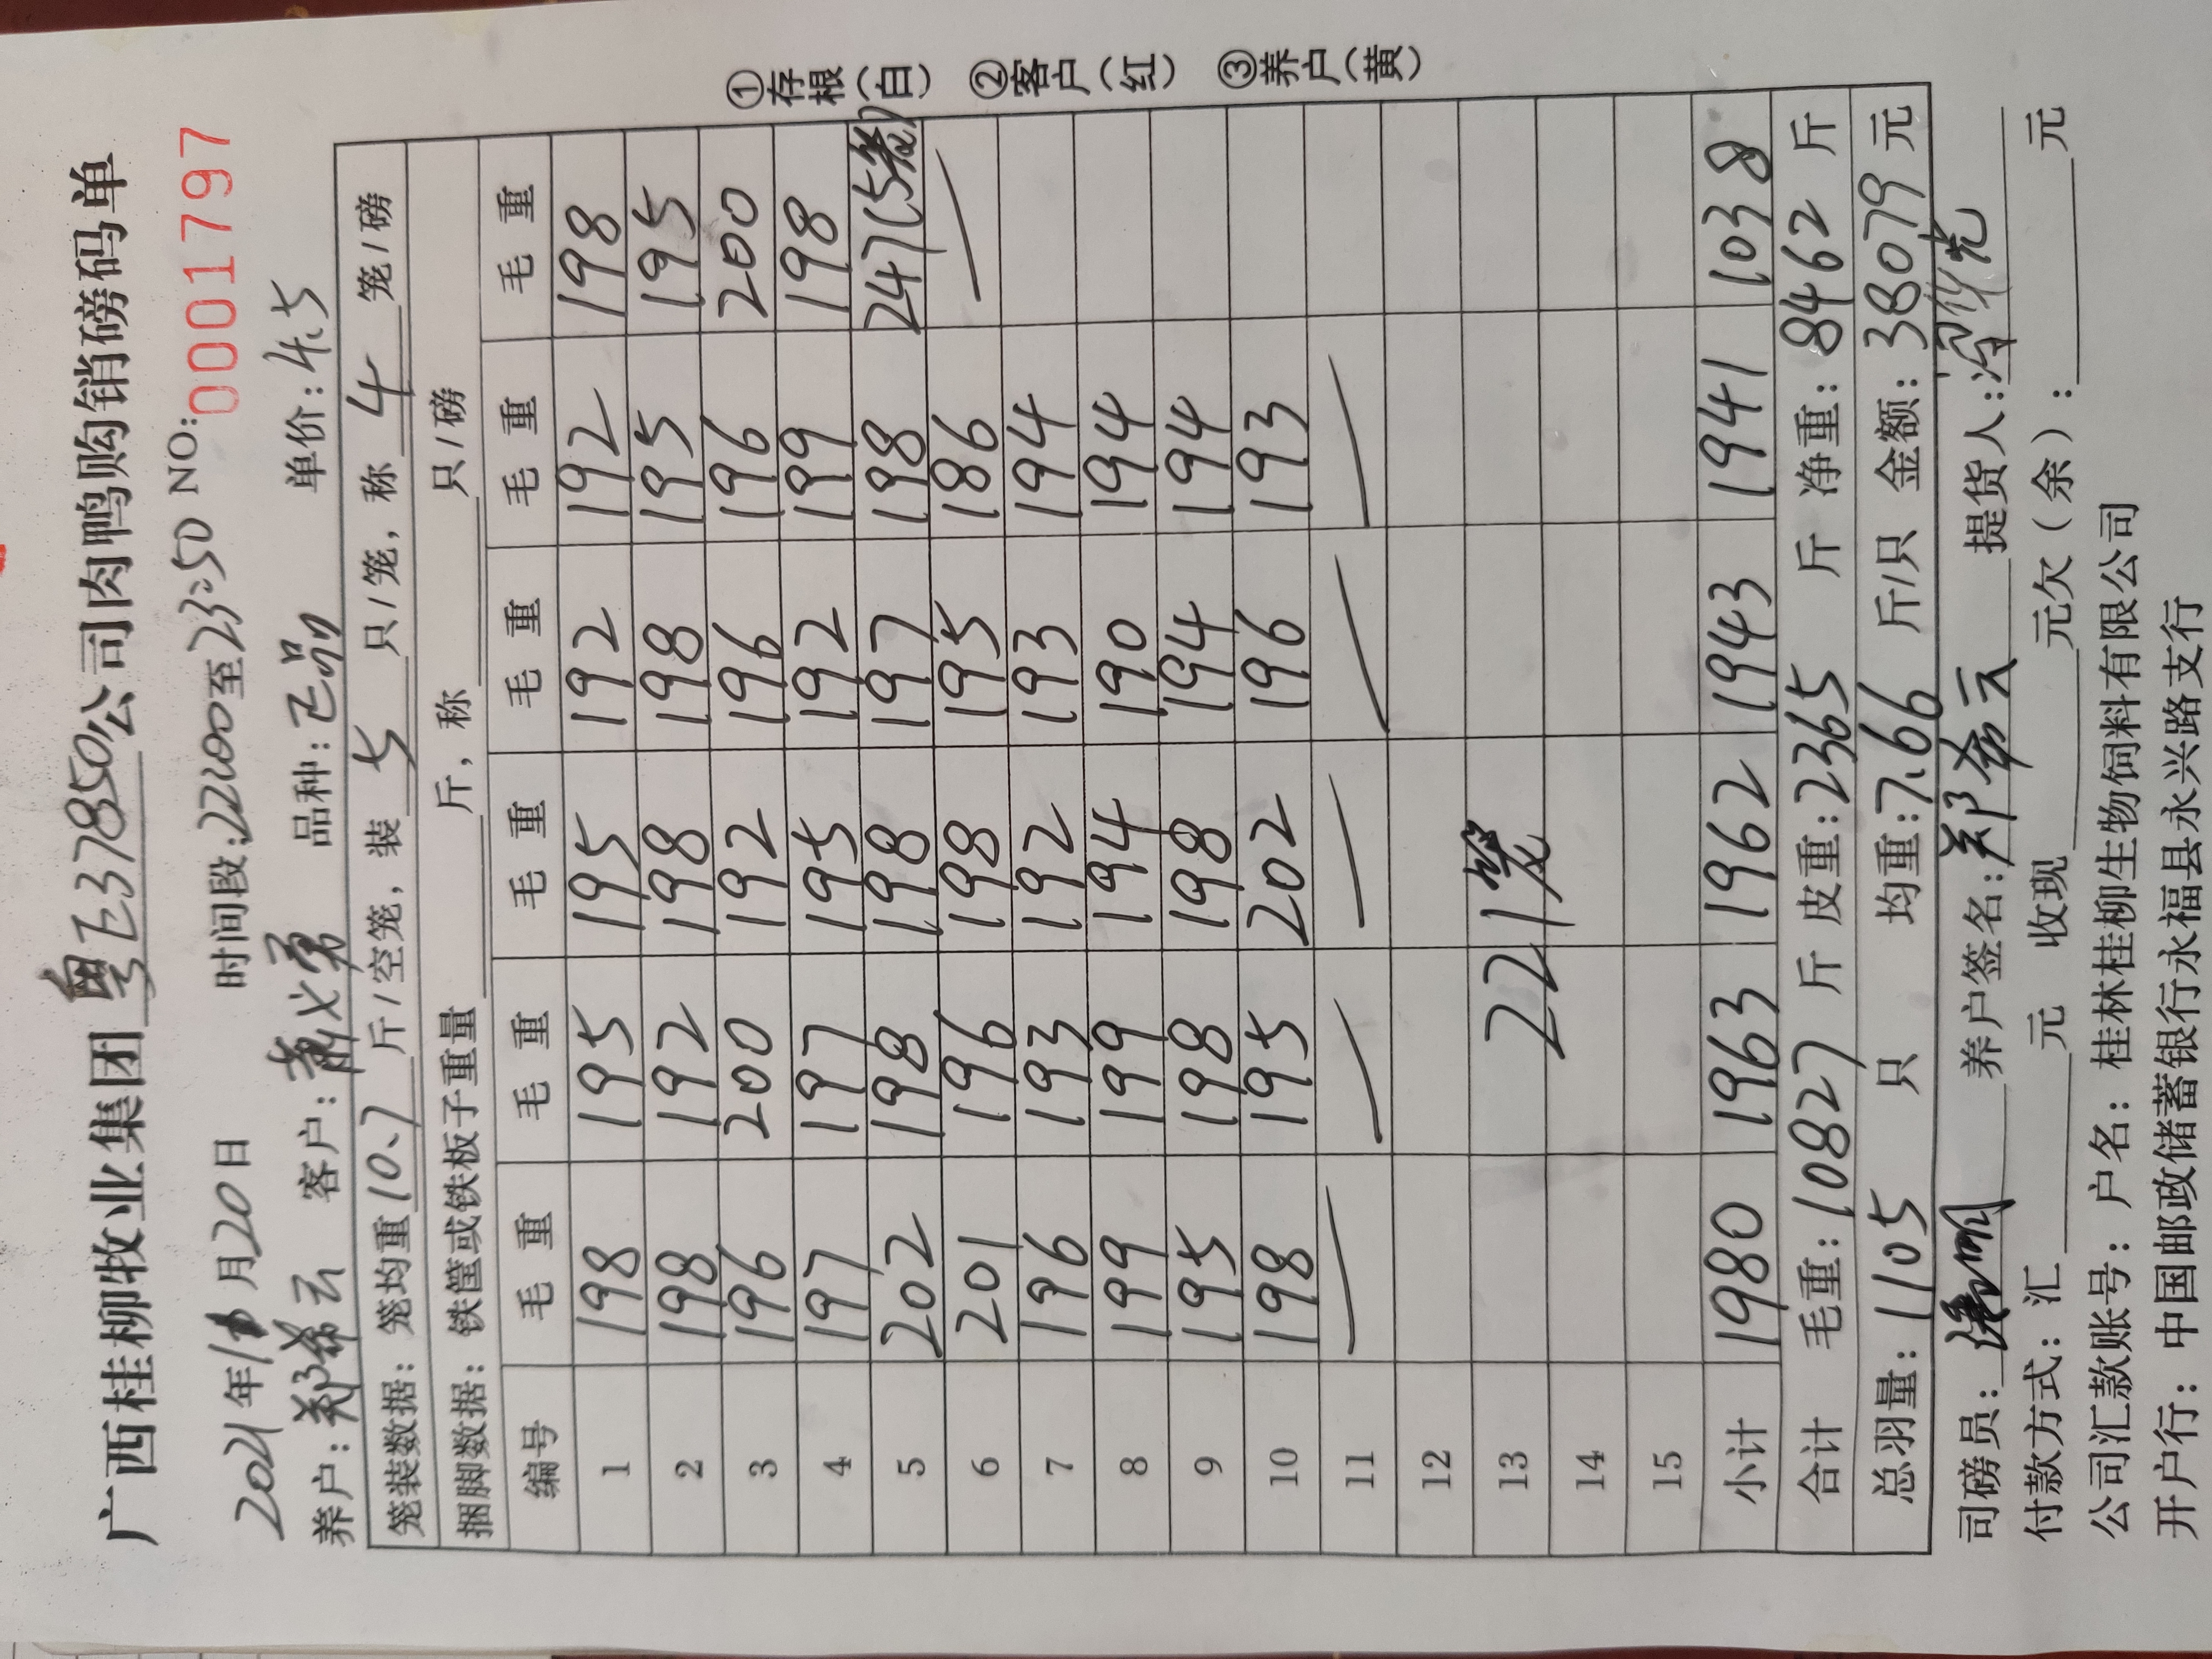 广西桂柳牧业集团粤E37850公司肉鸭购销磅码单
2021年11月20日 时间段:22:00至23:50 NO:0001797
养户:郑希云 客户:萧义勇 品种:乙品 单价:4.5
笼装数据:笼均重10.7斤/空笼,装5只/笼,称4笼/磅
捆脚数据:铁筐或铁板子重量 斤,称 只/磅
编号 毛重 毛重 毛重 毛重 毛重 毛重
1 198 195 195 192 192 198
2 198 192 198 198 195 195
3 196 200 192 196 196 200
4 197 197 195 192 199 198
5 202 198 198 197 198 247(5笼)
6 201 196 198 195 186
7 196 193 192 193 194
8 199 199 194 190 194
9 195 198 198 194 194
10 198 195 202 196 193
11
12
13 221笼
14
15
小计 1980 1963 1962 1943 1941 1038
合计 毛重:10827斤 皮重:2365斤 净重:8462斤
总羽量:1105只 均重:7.66斤/只 金额:38079元
司磅员: 养户签名:郑希云 提货人:
付款方式:汇 元 收现 元欠(余): 元
公司汇款账号:户名:桂林桂柳生物饲料有限公司
开户行:中国邮政储蓄银行永福县永兴路支行
①存根(白) ②客户(红) ③养户(黄)